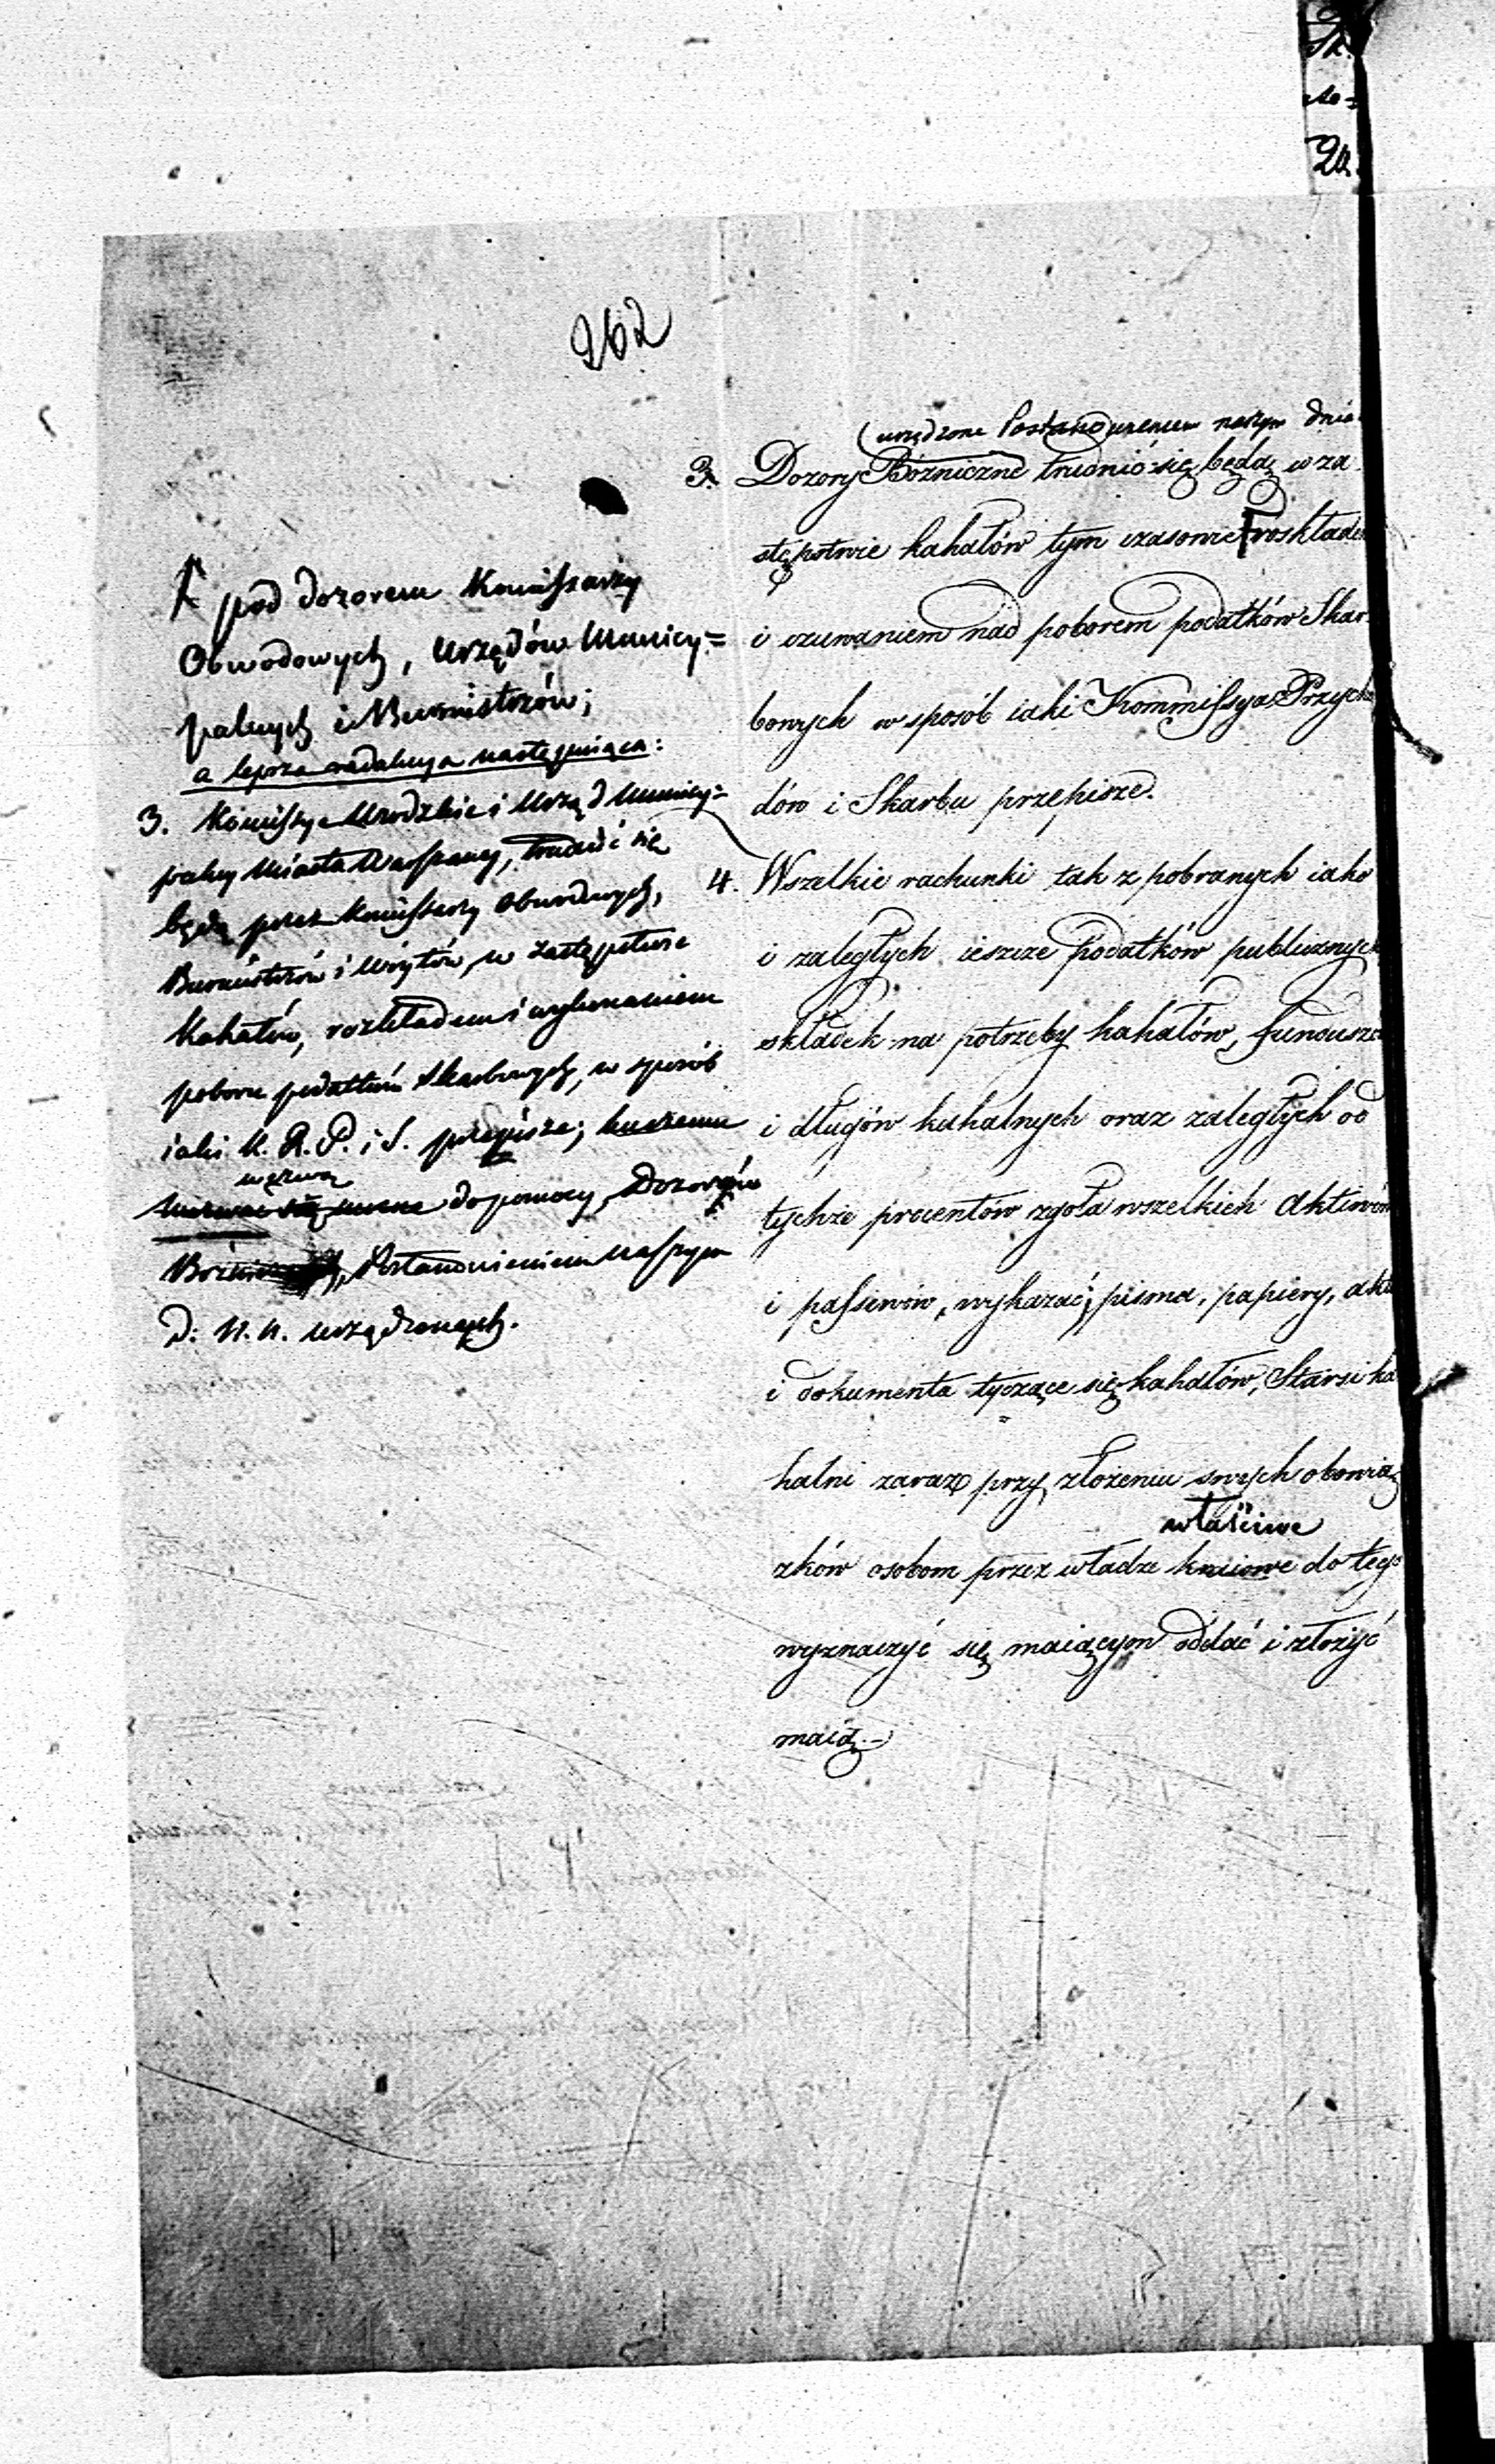 262
(urządzone Postanowieniem naszym dnia
3. Dozory Bóżniczne trudnić się będą w za
stępstwie kahałów tym czasowie rozkładem
i czuwaniem nad poborem podatków Skar-
bowych w sposób iaki Kommissya Przycho
dów i Skarbu przepisze.
4. Wszelkie rachunki tak z pobranych iako
i zaległych ieszcze podatków publicznych
składek na potrzeby kahałów, funduszów
i długów kahalnych oraz zaległych od
tychże procentów zgoła wszelkich aktiwów
i passiwów, wykazać, pisma, papiery, akta
i dokumenta tyczące się kahałów, Starsi ka
halni zaraz przy złożeniu swych obowią
właściwe
zków osobom przez władze kraiowe do tego
wyznaczyć się maiącym oddać i złożyć
maią.-
pod dozorem Komissarzy
Obwodowych, Urzędów Municy=
palnych i Burmistrzów;
a lepsza redakcya następuiąca:
3. Komissye Wwodzkie i Urząd Municy=
palny Miasta Warszawy, trudnić się
będą przez Komissarzy Obwodowych,
Burmistrzów i Wóytów, w zastępstwie
Kahałów, rozkładem i wykonaniem
poboru podatków Skarbowych, w sposób
iaki K. R. P. i S. przepisze;
wezwą
do pomocy, Dozorów
Postanowieniem Naszym
D: N. N. urządzonych.